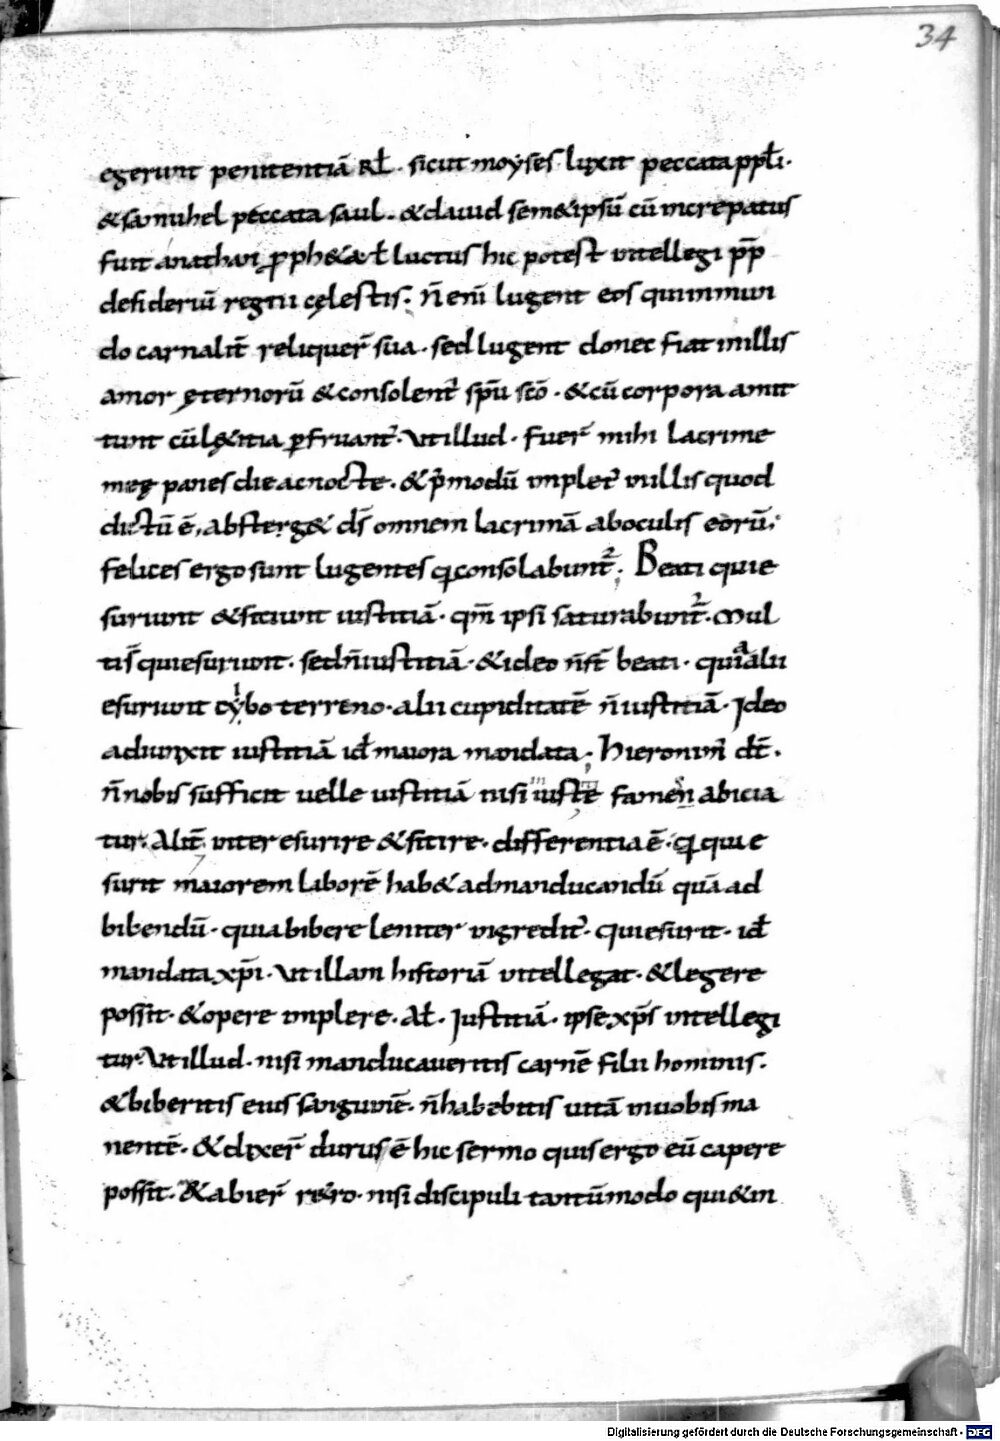 34
egerunt penitentiā Rł. sicut moyses luxit peccata ppłi.
& samuhel peccata saul. & dauid sem&ipsū cū increpatus
fuit anathan proph&a. ł luctus hic potest intellegi pp̄
desideriū regni cęlestis. n̄ enī lugent eos qui in mun
do carnalit̄ reliquer̄ sua. sed lugent donec fiat in illis
amor ęternorū & consolent᷑ spū scō. & cū corpora amit
tunt cū lętitia ꝑfruant᷑. Ut illud. fuer̄ mihi lacrime
meę panes die ac nocte. & p̄modū implet᷑ in illis quod
dictū ē, absterg& ds̄ omnem lacrimā ab oculis eorū;
felices ergo sunt lugentes q̄ consolabunt᷑. Beati qui e
suriunt & sitiunt iustitiā. qm̄ ipsi saturabunt᷑. Mul
ti s̄ qui esuriunt. sed n̄ iustitiā. & ideo n̄ st̄ beati. quia alii
esuriunt cybo terreno. alii cupiditatē n̄ iustitiā. Ideo
adiunxit iustitiā id maiora mandata. Hieronim᷑ dt̄.
n̄ nobis sufficit uelle iustitiā nisi iustitię famē n̄ abicia
tur. Alit̄ inter esurire & sitire. differentia ē. q̄ qui e
surit maiorem laborē hab& ad manducandū quā ad
bibendū. quia bibere leniter ingredit᷑. qui esurit. id
mandata xp̄i. Ut illam historiā intellegat. & legere
possit. & opere implere. Ał. Iustitiā. ipse xp̄s intellegi
tur. Ut illud. nisi manducaueritis carnē filii hominis.
& biberitis eius sanguinē. n̄ habebitis uitā in uobis ma
nentē. & dixer̄ durus ē hic sermo quis ergo eū capere
possit. & abier̄ r&ro. nisi discipuli tantūmodo qui & in
Digitalisierung gefördert durch die Deutsche Forschungsgemeinschaft - DFG